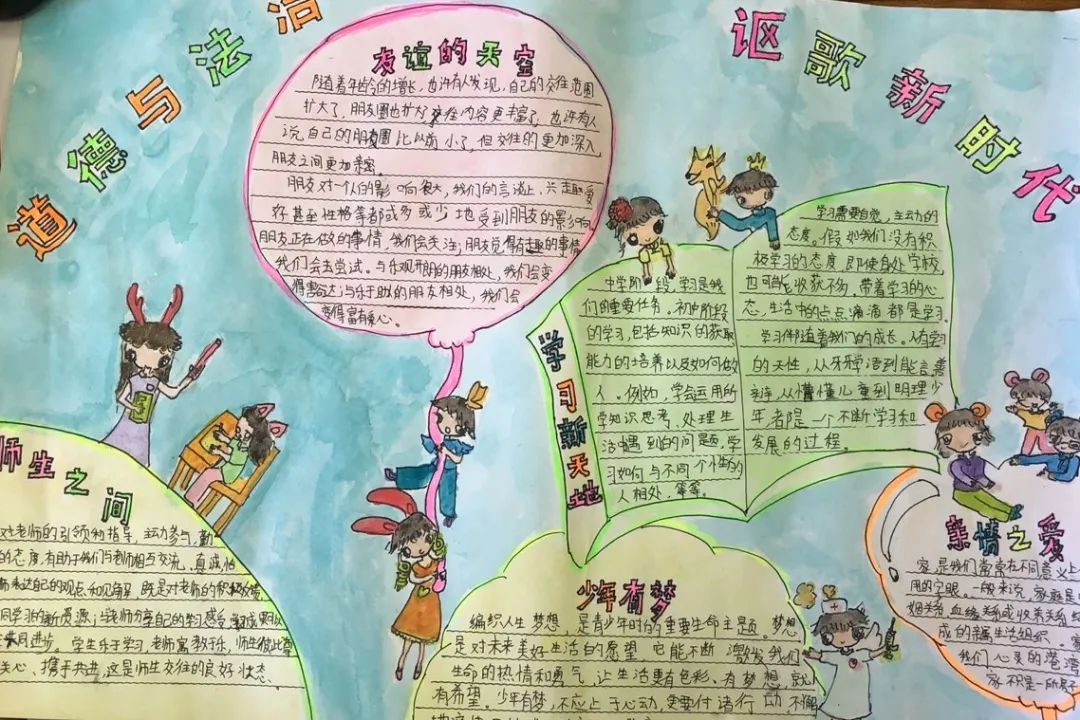 道德与法治
讴歌新时代
友谊的天空
随着年龄的增长，也许有人发现，自己的交往范围
扩大了，朋友圈也扩大，交往内容更丰富了，也许有人
说，自己的朋友圈比以前小了，但交往的更加深入，
朋友之间更加亲密。
朋友对一个人的影响很大，我们的言谈上，兴趣爱
好甚至性格等都或多或少地受到朋友的影响。
朋友正在做的事情，我们会关注；朋友觉得有趣的事情
我们会去尝试。与乐观开朗的朋友相处，我们会变
得豁达；与乐于助人的朋友相处，我们会
变得富有爱心。
学习新天地
中学阶段，学习是我
们的重要任务。初中阶段
的学习，包括知识的获取
能力的培养以及如何做
人，例如，学会运用所
学知识思考、处理生
活中遇到的问题，学
习如何与不同个性的
人相处，等等。
学习需要自觉，主动的
态度。假如我们没有积
极学习的态度，即使身处学校，
也可能收获不多，带着学习的心
态，生活中的点点滴滴都是学习。
学习伴随着我们的成长。人有学习
的天性，从牙牙学语到能言善
辩，从懵懂儿童到明理少
年，都是一个不断学习和
发展的过程。
师生之间
对老师的引领和指导，主动参与，勤
的态度，有助于我们与老师相互交流，真诚
表达自己的观点和见解，既是对老师的积极
同学习的新资源；与老师分享自己的学习感受
共同进步。学生乐于学习，老师寓教于乐，师生彼此
关心、携手共进，这是师生交往的良好状态。
少年有梦
编织人生梦想，是青少年时的重要生命主题。梦想
是对未来美好生活的愿望，它能不断激发我们
生命的热情和勇气，让生活更有色彩。有梦想，就
有希望。少年有梦，不应止于心动，更要付诸行动，不懈
亲情之爱
家是我们常常在不同意义上
用的字眼。一般来说，家庭是由
姻关系、血缘关系或收养关系
成的亲属生活组织。家
我们心灵的港湾
家不只是一所房子